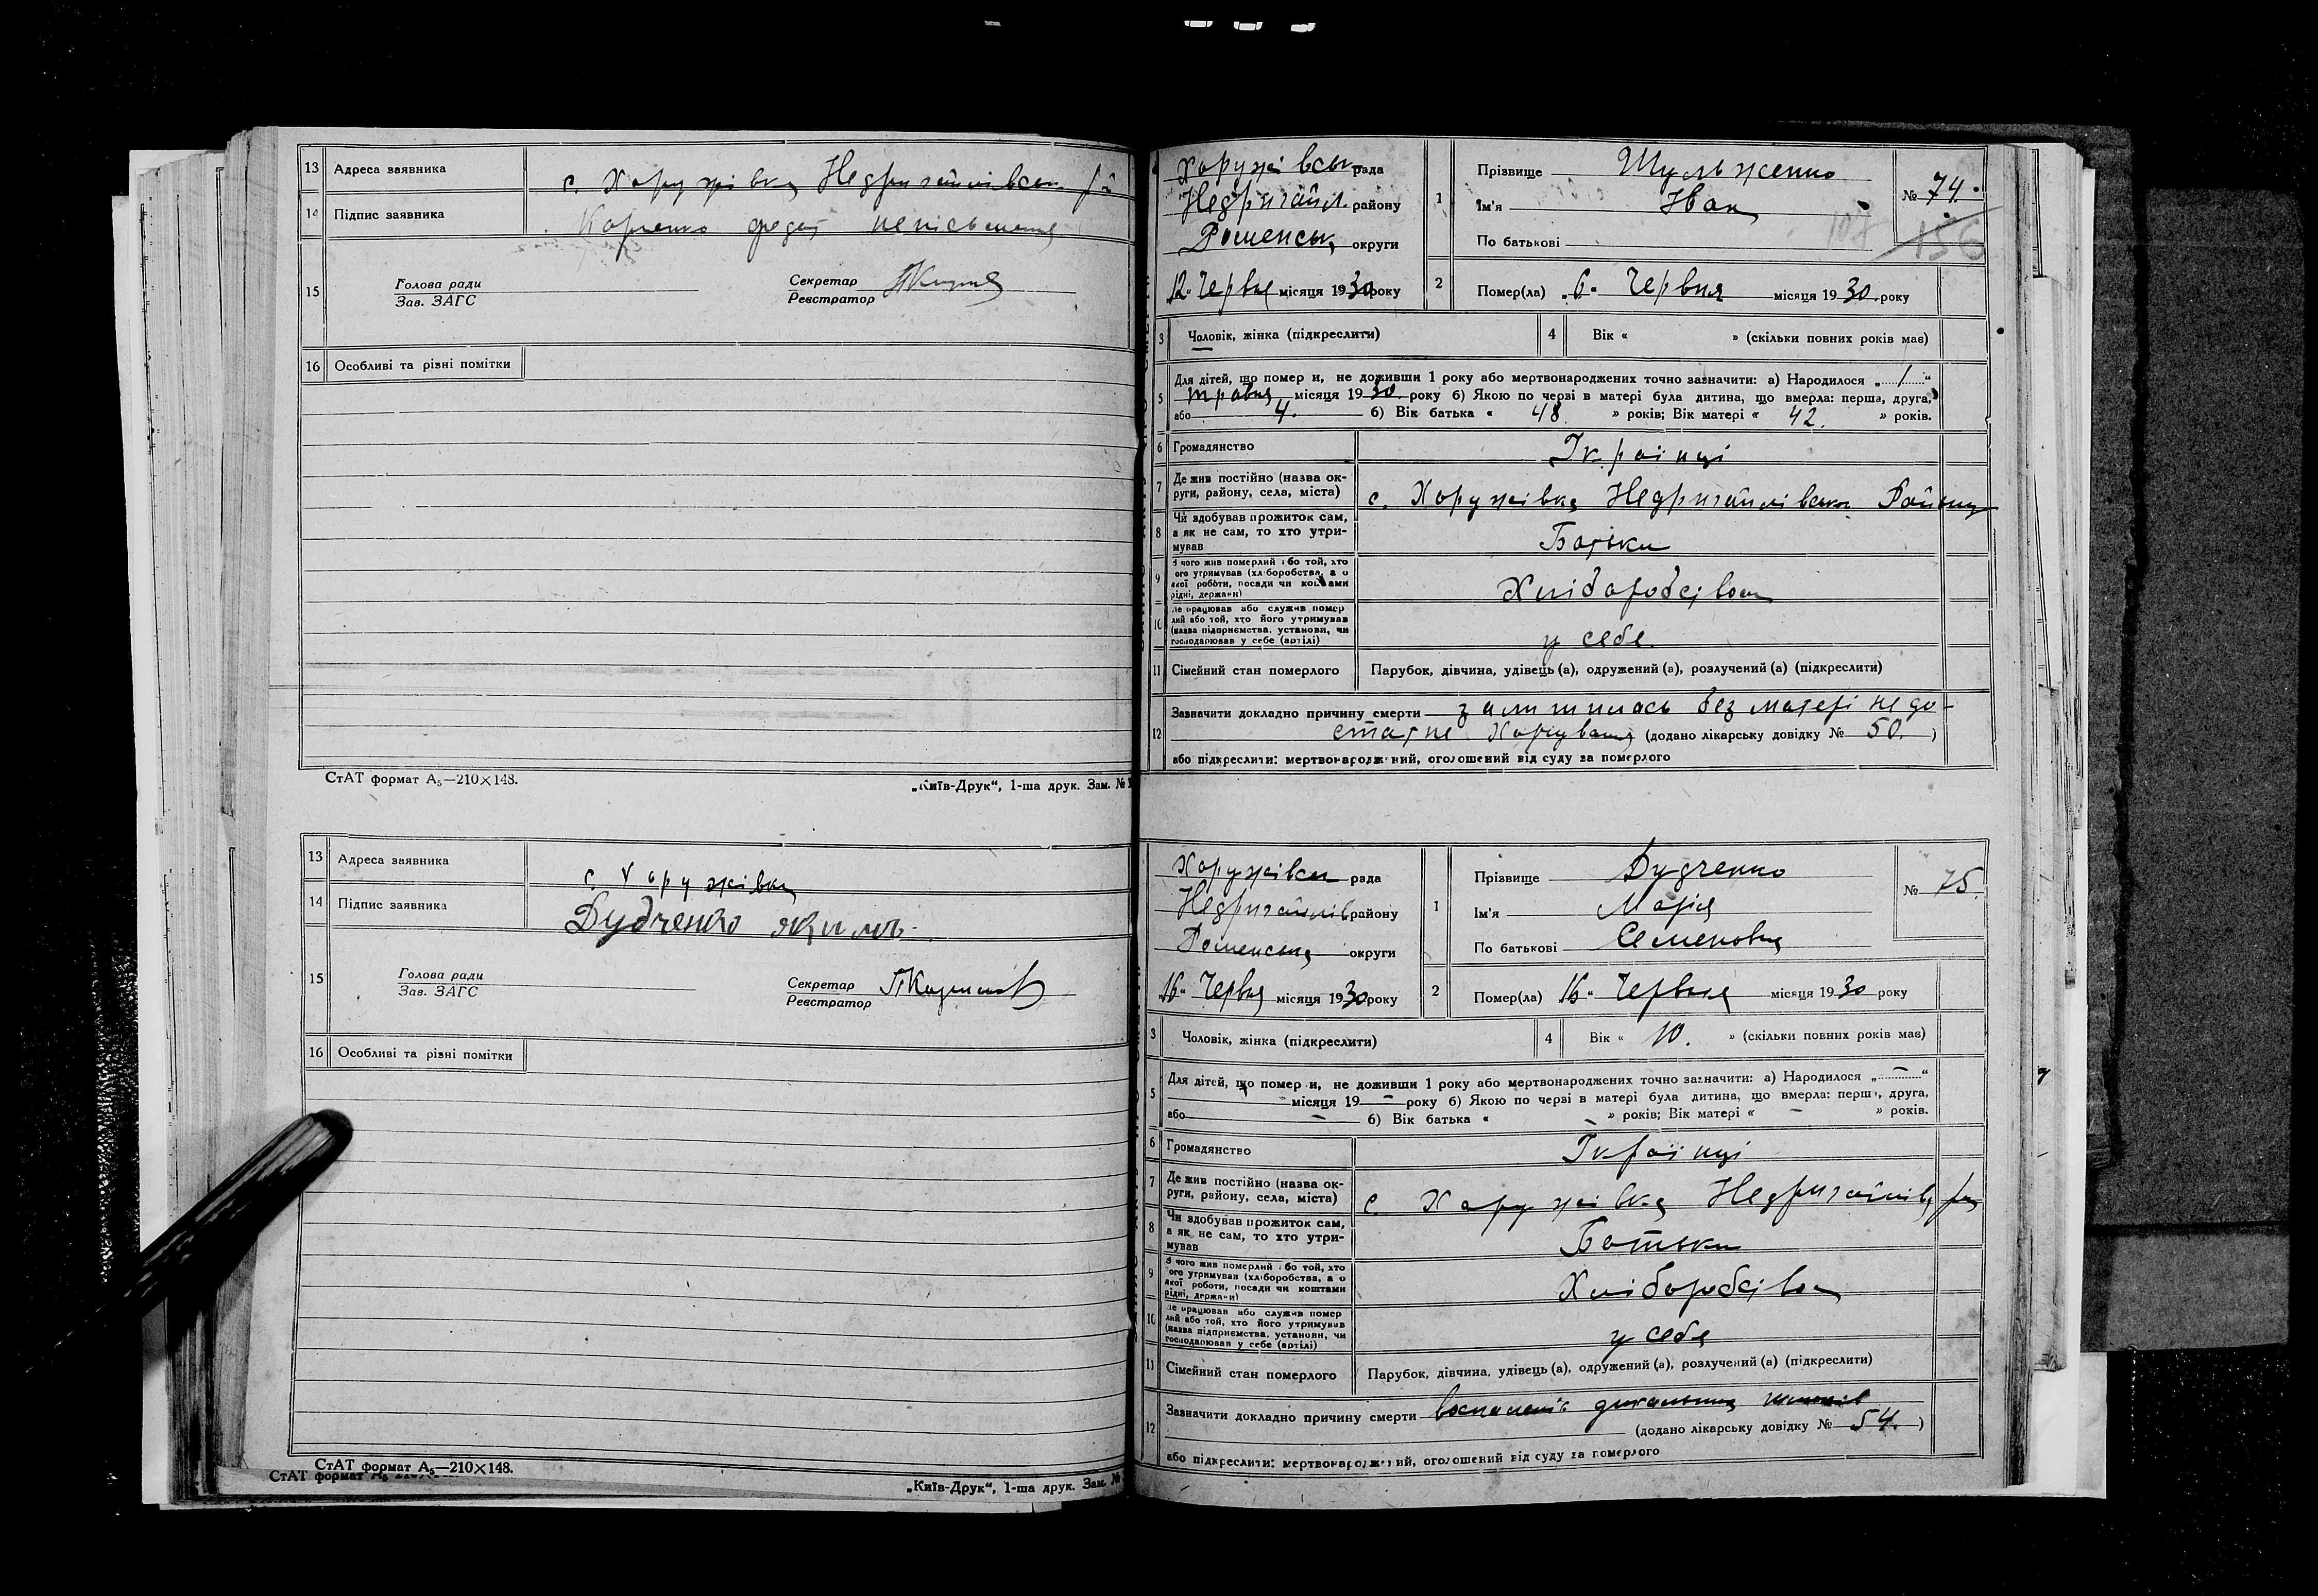 13 Адреса заявника с. Хоружівка Недригайлівськ
14 Підпис заявника Карпенко федат неписьменна
15 Голова ради
Зав. ЗАГС
Секретар
Реєстратор
16 Особливі та різні помітки
СтАТ формат А5—210×148.
„Київ-Друк“, 1-ша друк. Зам. №
13 Адреса заявника с. Хоружівка
14 Підпис заявника Дудченко якимъ
15 Голова ради
Зав. ЗАГС
Секретар
Реєстратор
16 Особливі та різні помітки
СтАТ формат А5—210×148.
СтАТ формат А5
„Київ-Друк“, 1-ша друк. Зам. №
Хоружівськ рада
Недригайл. району
Роменськ округи
12 Червня місяця 1930 року
1 Прізвище Шульженко
Ім'я Іван
По батькові
№ 74.
156
2 Помер(ла) „6“ Червня місяця 1930 року
3 Чоловік, жінка (підкреслити)
4 Вік « » (скільки повних років має)
5 Для дітей, що помер и, не доживши 1 року або мертвонароджених точно зазначити: а) Народилося „1“
травня місяця 1930 року б) Якою по черзі в матері була дитина, що вмерла: перша, друга,
або 4. б) Вік батька « 48 » років; Вік матері « 42. » років.
6 Громадянство Українці
7 Де жив постійно (назва округи, району, села, міста) с. Хоружівка Недригайлівськ Району
8 Чи здобував прожиток сам,
а як не сам, то хто утри-
мував Батьки
9 З чого жив померлий або той, хто
його утримував (хліборобства, а о
якої роботи, посади чи коштами
рідні, держави) Хліборобством
10 Де працював або служив помер
лий або той, хто його утримував
(назва підприємства, установи, чи
господарював у себе (артілі) у себе.
11 Сімейний стан померлого Парубок, дівчина, удівець (а), одружений (а), розлучений (а) (підкреслити)
12 Зазначити докладно причину смерти залишилась без матері недо-
статнє Харчування (додано лікарську довідку № 50. )
або підкреслити: мертвонароджений, оголошений від суду за померлого
Хоружівськ рада
Недригайлів району
Роменська округи
16 Червня місяця 1930 року
1 Прізвище Дудченко
Ім'я Марія
По батькові Семеновна
№ 75.
2 Помер(ла) 16 Червня місяця 1930 року
3 Чоловік, жінка (підкреслити)
4 Вік « 10. » (скільки повних років має)
5 Для дітей, що помер и, не доживши 1 року або мертвонароджених точно зазначити: а) Народилося „—“
місяця 19— року б) Якою по черзі в матері була дитина, що вмерла: перша, друга,
або — б) Вік батька « — » років; Вік матері « — » років.
6 Громадянство Українці
7 Де жив постійно (назва округи, району, села, міста) с. Хоружівка Недригайлів
8 Чи здобував прожиток сам,
а як не сам, то хто утри-
мував Батьки
9 З чого жив померлий або той, хто
його утримував (хліборобства, а о
якої роботи, посади чи коштами
рідні, держави) Хліборобством
10 Де працював або служив помер
лий або той, хто його утримував
(назва підприємства, установи, чи
господарював у себе (артілі) у себе
11 Сімейний стан померлого Парубок, дівчина, удівець (а), одружений (а), розлучений (а) (підкреслити)
12 Зазначити докладно причину смерти воспаленіє дихальних
(додано лікарську довідку № 54. )
або підкреслити: мертвонароджений, оголошений від суду за померлого